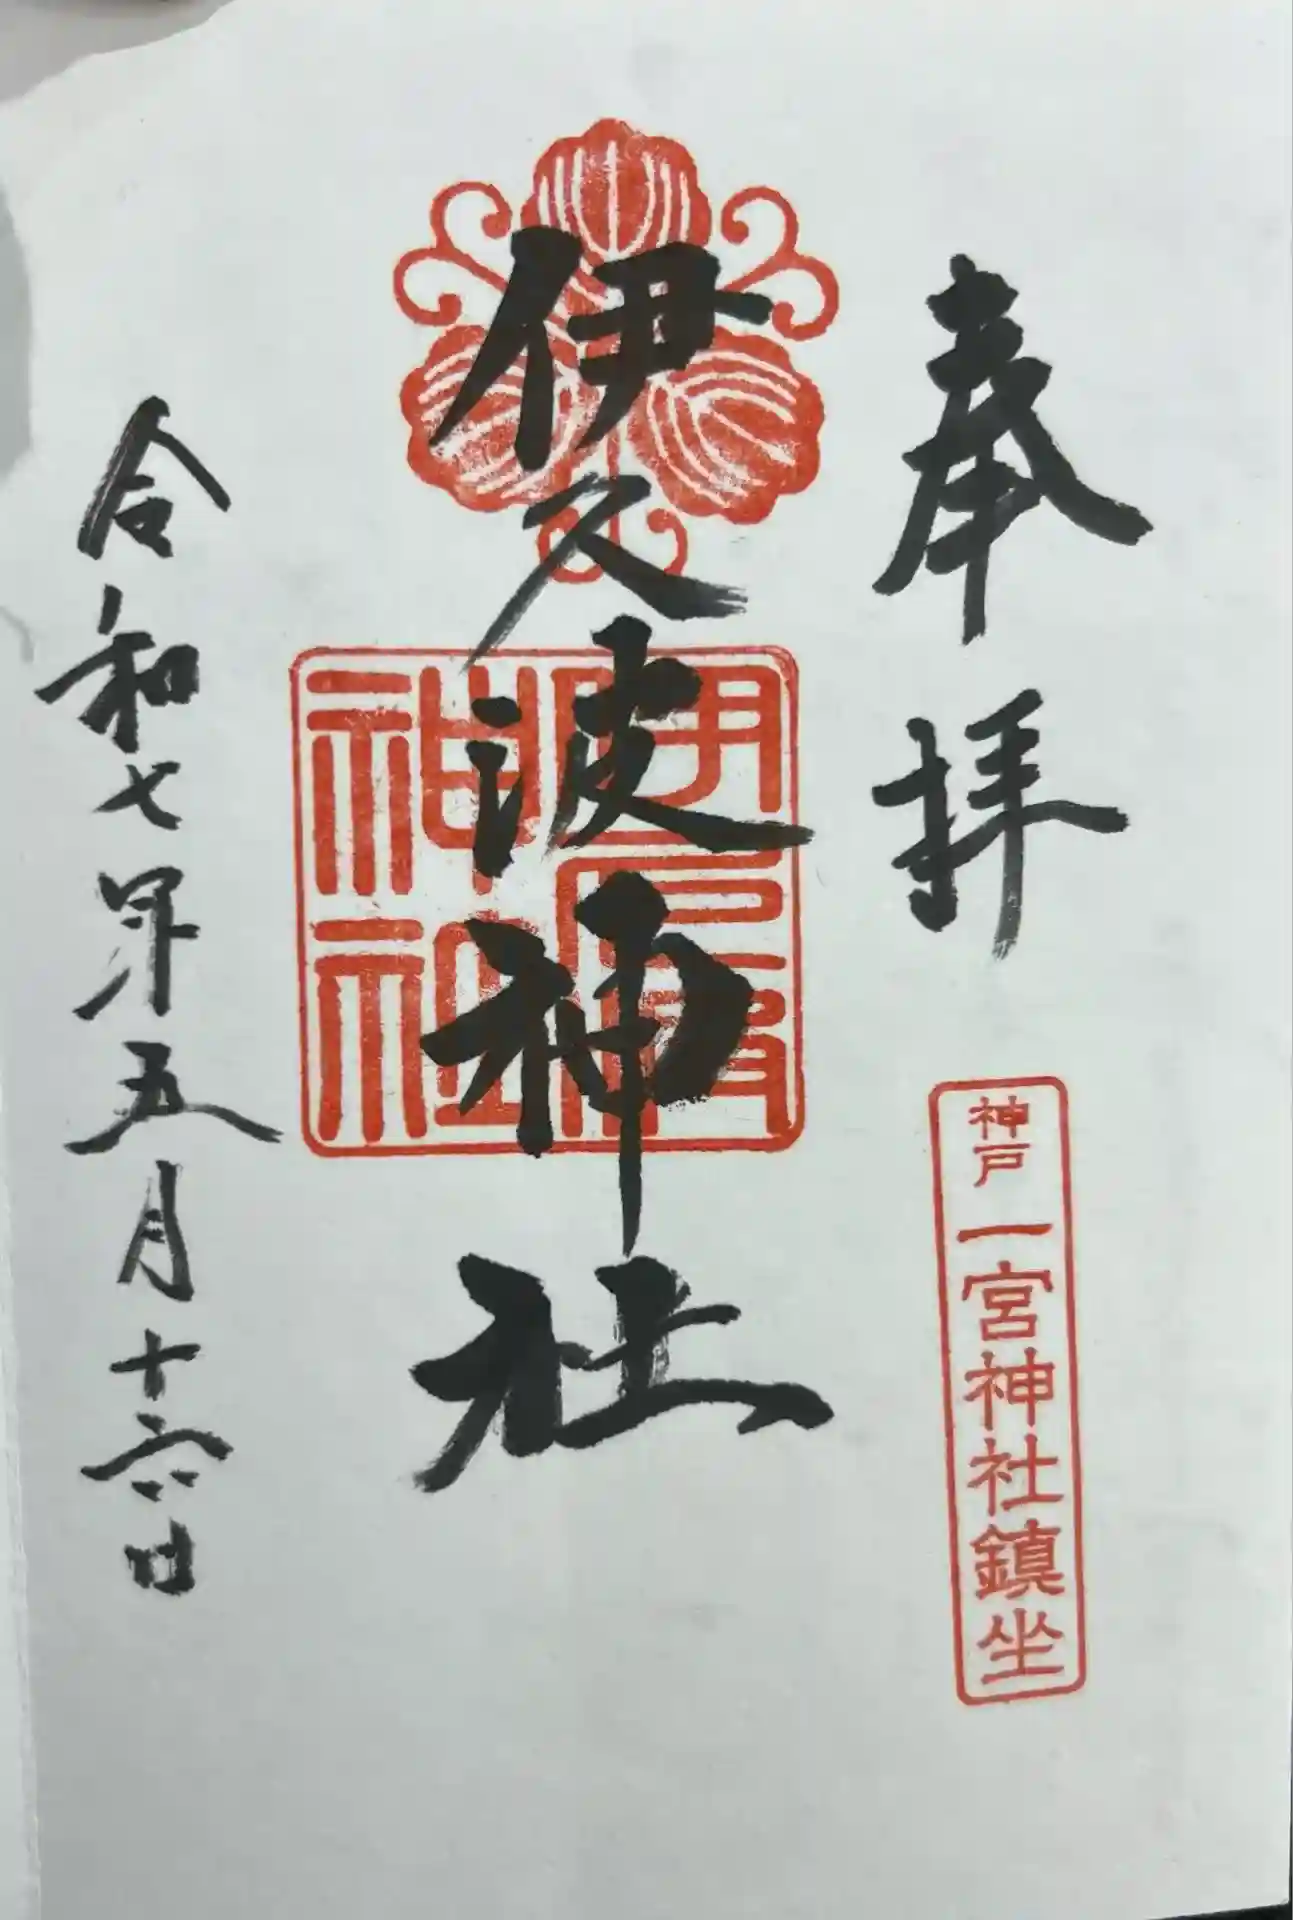 奉拝
神戸一宮神社鎮坐
伊久波神社
伊久波神社
令和七年五月十六日